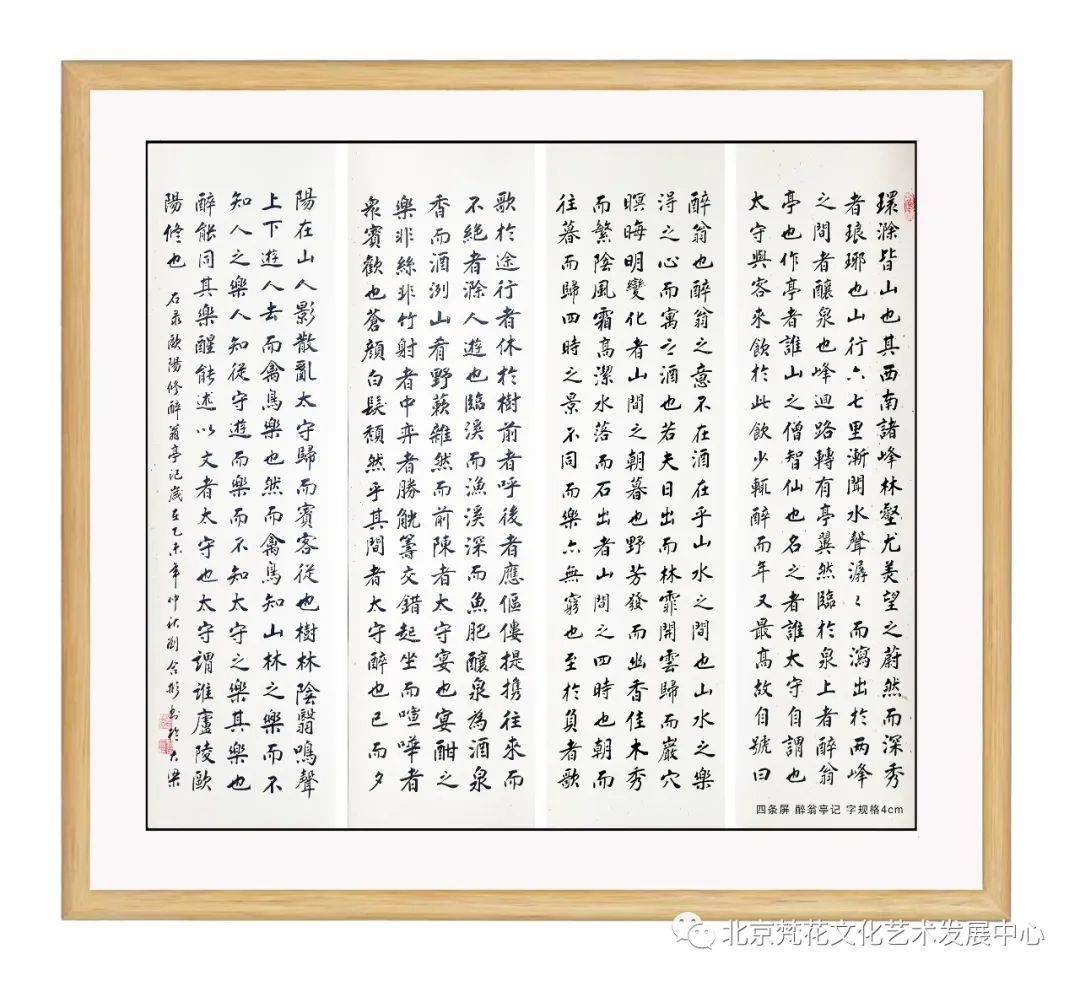 環滁皆山也其西南諸峰林壑尤美望之蔚然而深秀
者琅琊也山行六七里漸聞水聲潺々而瀉出於兩峰
之間者釀泉也峰迴路轉有亭翼然臨於泉上者醉翁
亭也作亭者誰山之僧智仙也名之者誰太守自謂也
太守與客來飲於此飲少輒醉而年又最高故自號曰
醉翁也醉翁之意不在酒在乎山水之間也山水之樂
淂之心而寓之酒也若夫日出而林霏開雲歸而巖穴
暝晦明變化者山間之朝暮也野芳發而幽香佳木秀
而繁陰風霜高潔水落而石出者山間之四時也朝而
往暮而歸四時之景不同而樂亦無窮也至於負者歌
歌於途行者休於樹前者呼後者應傴僂提攜往來而
不絕者滁人遊也臨溪而漁溪深而魚肥釀泉為酒泉
香而酒洌山肴野蔌雜然而前陳者太守宴也宴酣之
樂非絲非竹射者中弈者勝觥籌交錯起坐而喧嘩者
衆賓歡也蒼顏白髮頹然乎其間者太守醉也已而夕
陽在山人影散亂太守歸而賓客從也樹林陰翳鳴聲
上下遊人去而禽鳥樂也然而禽鳥知山林之樂而不
知人之樂人知從守遊而樂而不知太守之樂其樂也
醉能同其樂醒能述以文者太守也太守謂誰廬陵歐
陽修也 右录歐陽修醉翁亭记歲在乙未年仲秋劉合彬書於大梁
四条屏 醉翁亭记 字规格4cm
北京梵花文化艺术发展中心